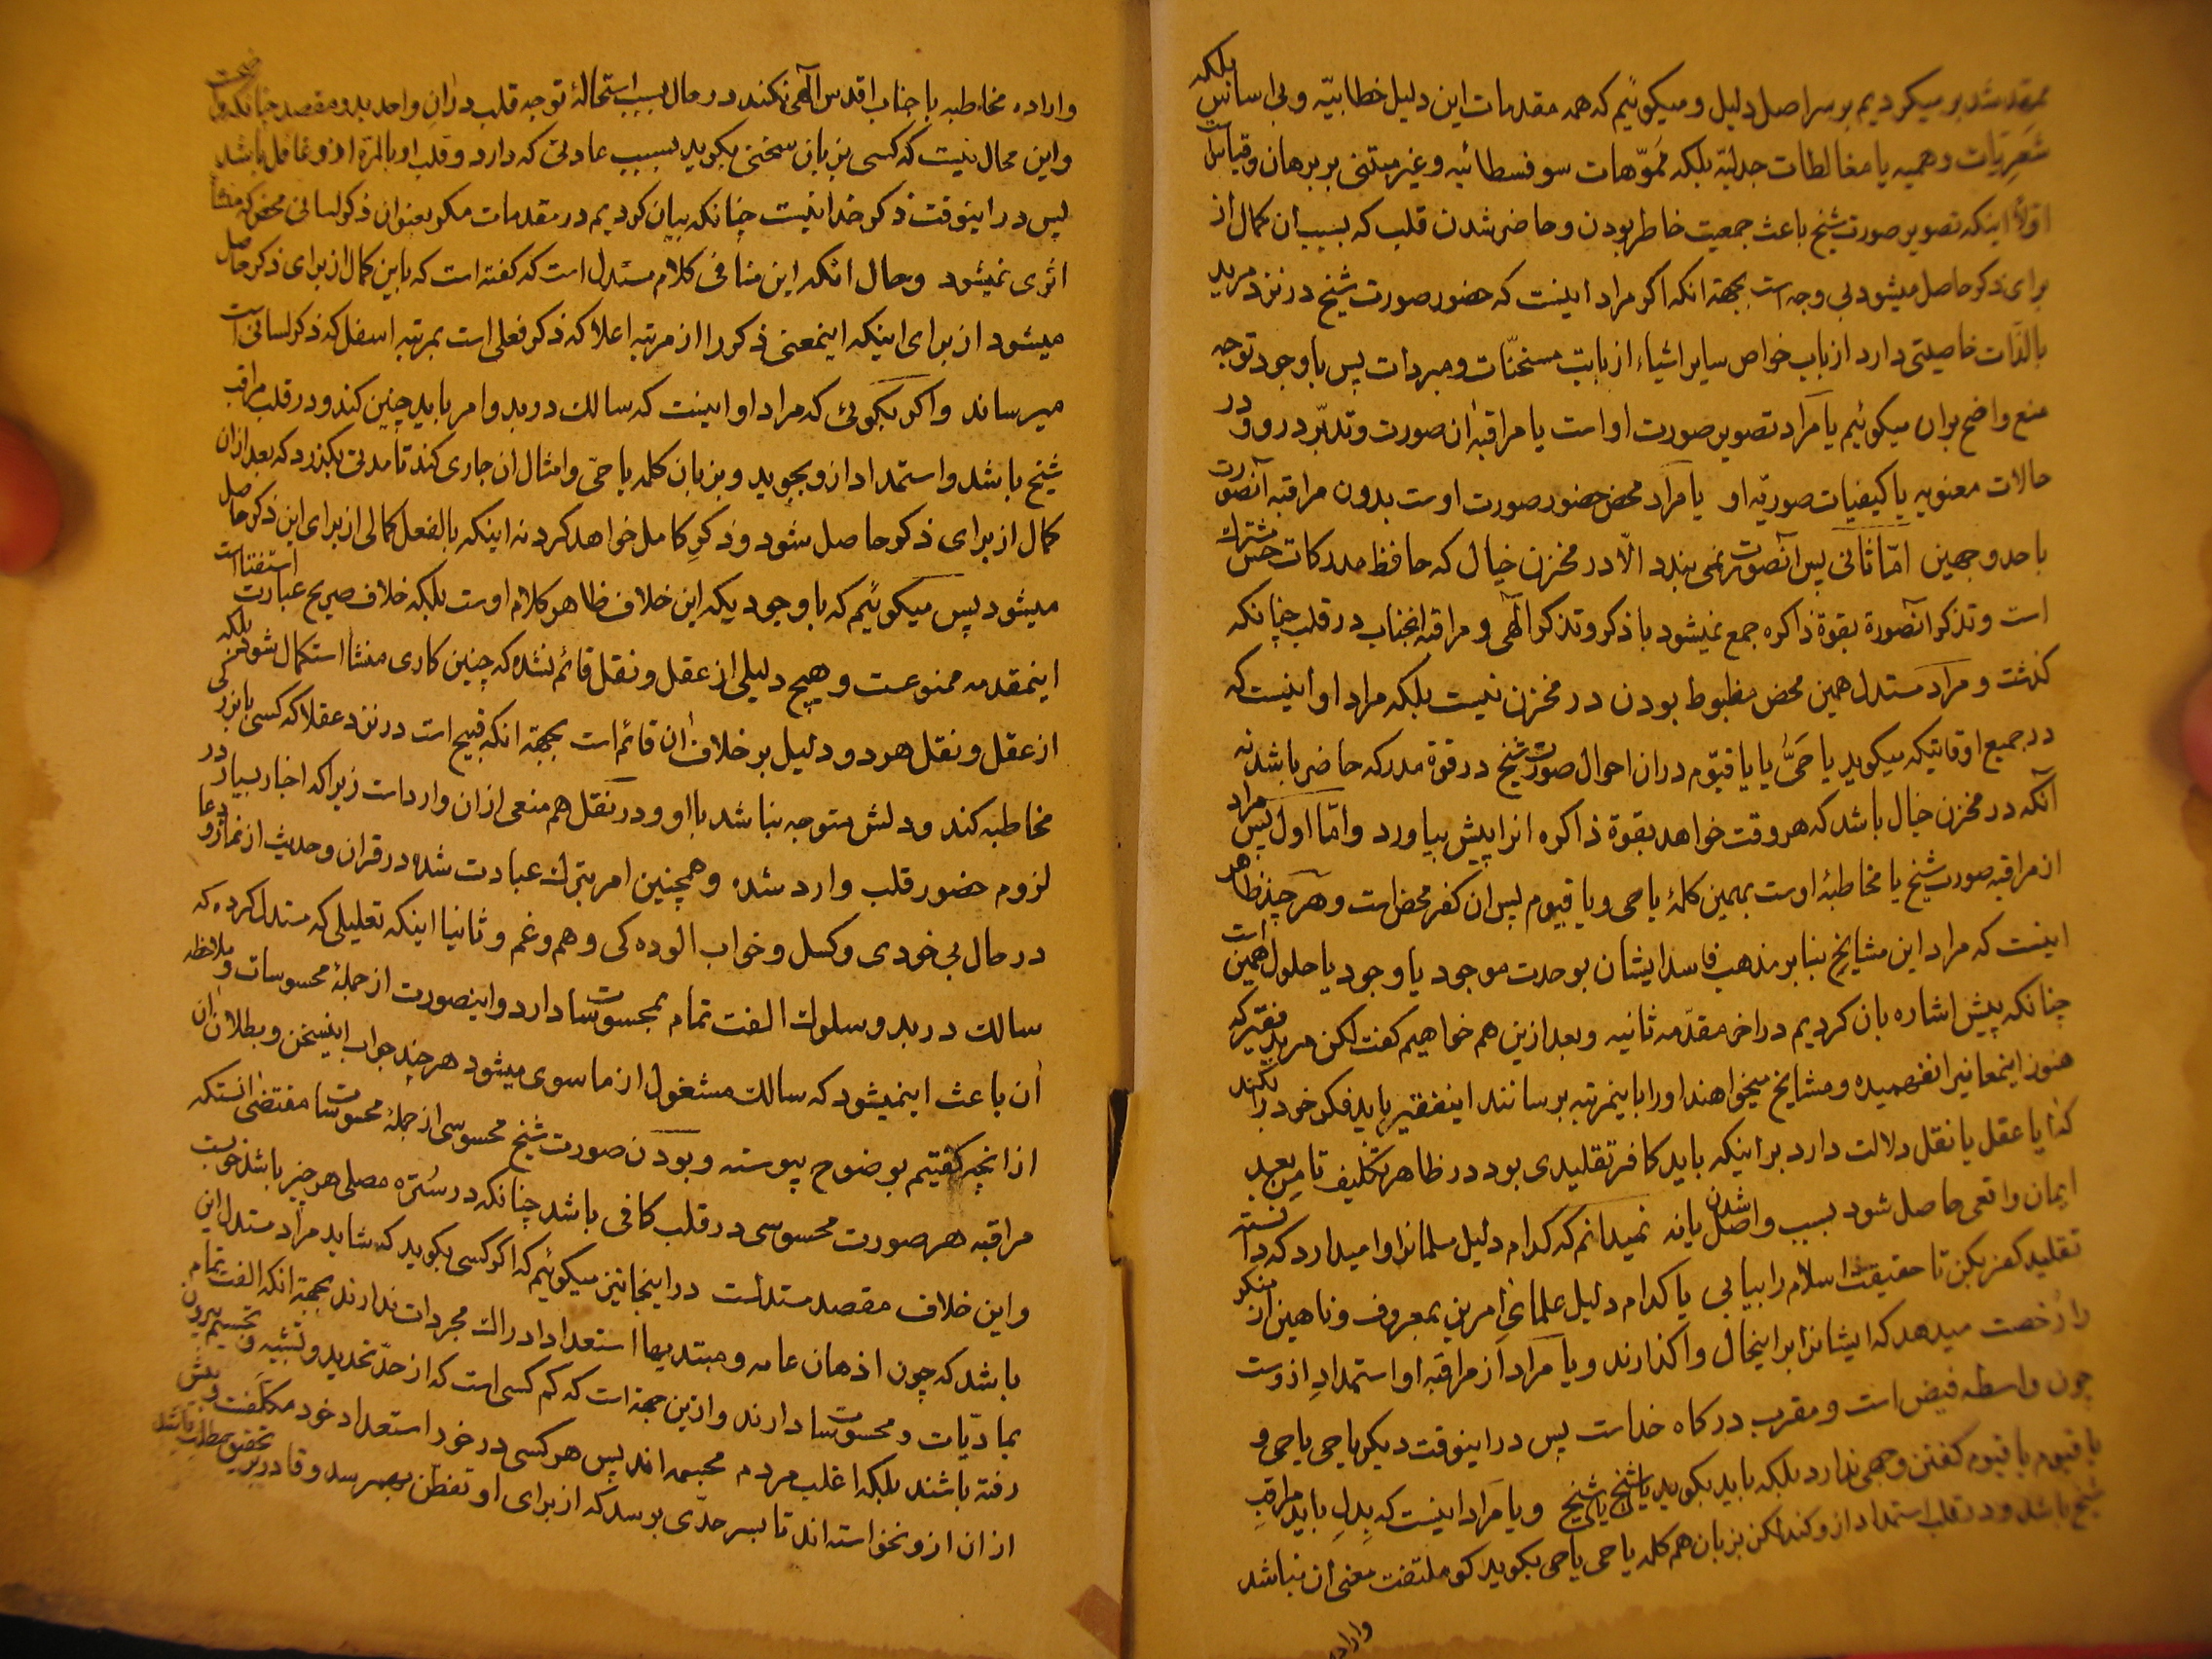 ممهد شد بر میکردیم بر سر اصل دلیل و میکوئیم که همه مقدمات این دلیل خطابیّه و بی اساس بلکه
شعریات وهمیه یا مغالطات جدلیّه بلکه مموّهات سوفسطائیه و غیر مبتنی بر برهان و قیاس است
اوّلاً اینکه تصویر صورت شیخ باعث جمعیت خاطر بودن و حاضر شدن قلب که بسبب ان کمال از
برای ذکر حاصل میشود بی وجه است بجهة انکه اکر مراد اینست که حضور صورت شیخ در نزد مرید
بالذّات خاصیتی دارد از باب خواص سایر اشیاء از بابت مسخنّات و مبردات پس با وجود توجه
منع واضح بران میکوئیم یا مراد تصویر صورت او است یا مراقبهٔ ان صورت و تدبّر در و و در
حالات معنویه یا کیفیات صوریّه او یا مراد محض حضور صورت اوست بدون مراقبه آنصورت
باحد وجهین امّا ثانی پس آنصورت نمی بندد الّا در مخزن خیال که حافظ مدرکات حس مشترك
است و تذکر آنصورة بقوة ذاکره جمع نمیشود با ذکر و تذکر الٓهی و مراقبه انجناب در قلب چنانکه
کذشت و مراد مستدل همین محض مظبوط بودن در مخزن نیست بلکه مراد او اینیست که
در جمیع اوقاتیکه میکوید یا حَیُّ یا یا قیّوم دران احوال صورت شیخ در قوة مدرکه حاضر باشد نه
آنکه در مخزن خیال باشد که هر وقت خواهد بقوة ذاکره انرا پیش بیاورد و امّا اول پس مراد
از مراقبه صورت شیخ یا مخاطبهٔ اوست بهمین کلمهٔ یا حی و یا قیوم پس ان کفر محض است و هر چند ظاهر
اینست که مراد این مشایخ بنا بر مذهب فاسد ایشان بوحدت موجود یا وجود یا حلول همین است
چنانکه پیش اشاره بان کردیم در اخر مقدّمه ثانیه و بعد ازین هم خواهیم کفت لکن مرید فقیر که
هنوز اینمعانیرا نفهمیده و مشایخ میخواهند اورا باینمرتبه برسانند اینفقیر باید فکر خود را بکند
کدا یا عقل یا نقل دلالت دارد بر اینکه باید کافر تقلیدی بود در ظاهر تکلیف تا من بعد
ایمان واقعی حاصل شود بسبب واصل شدن یا نه نمیدانم که کدام دلیل مسلمانرا وا میدارد که دانسته
تقلید کفر بکن تا حقیقت اسلام را بیابی یا کدام دلیل علمای امرین بمعروف و ناهین از منکر
را رُخصت میدهد که ایشانرا بر اینحال واکذارند و یا مراد از مراقبه او استمدادِ از وست
چون واسطه فیض است و مقرب درکاه خداست پس در اینوقت دیکر یا حی یا حی و
یا قیوم یا قیوم کفتن وجهی ندارد بلکه باید بکوید یا شیخ یا شیخ و یا مراد اینست که بدل باید مراقب
شیخ باشد و در قلب استمداد ازو کند لکن بزبان هم کلمه یا حی یا حی بکوید کو ملتفت معنی ان نباشد
واراده
واراده مخاطبه با جناب اقدس الٓهی نکند در حال بسبب استحالهٔ توجه قلب در ان واحد بدو مقصد چنانکه
واین محال نیست که کسی بزبان سخنی بکوید بسبب عادتی که دارد و قلب او بالمرّة ازو غافل باشد
پس در اینوقت ذکر خدا نیست چنانکه بیان کردیم در مقدمات مکر بعنوان ذکر لسانی محض که منشأ
اثری نمیشود وحال انکه این منافی کلام مستدل است که کفته است که باین کمال از برای ذکر حاصل
میشود از برای اینکه اینمعنی ذکر را از مرتبه اعلا که ذکر فعلی است بمرتبه اسفل که ذکر لسانی است
میرساند واکر بکوئی که مراد او اینست که سالك در بدو امر باید چنین کند و در قلب مراقب
شیخ باشد و استمداد ازو بجوید و بزبان کلمه یا حّی و امثال ان جاری کند تا مدتی بکذرد که بعد ازان
کمال از برای ذکر حاصل شود و ذکرِ کامل خواهد کرد نه اینکه بالفعل کمالی از برای این ذکر حاصل
میشود پس میکوئیم که با وجودیکه این خلاف ظاهر کلام اوست بلکه خلاف صریح عبارت استفتا است
اینمقدمه ممنوعست و هیچ دلیلی از عقل و نقل قائم نشده که چنین کاری منشا استکمال شود بلکه
از عقل و نقل هر دو دلیل بر خلاف ان قائم است بجهة انکه قبیح است در نزد عقلا که کسی با بزرکی
مخاطبه کند و دلش متوجه نباشد با او و در نقل هم منعی از ان وارداست زیراکه اخبار بسیار در
لزوم حضور قلب وارد شده وهمچنین امر بترك عبادت شده در قران و حدیث از نماز و دعا
در حال بی خودی وکسل و خواب الوده کی و هم و غم و ثانیا اینکه تعلیلی که مستدل کرده که
سالك در بدو سلوك الفت تمام بمحسوسات دارد و اینصورت از جملهٔ محسوسات و ملاحظه
ان باعث اینمیشود که سالك مشغول از ما سوی میشود هر چند جواب اینسخن و بطلان ان
ازانچه کفتیم بوضوح پیوسته و بودن صورت شیخ محسوسی از جملهٔ محسوسات مقتضی انستکه
مراقبه هر صورت محسوسی در قلب کافی باشد چنانکه در سُتره مصلی هر چیز باشد خوبست
واین خلاف مقصد مستدلست در اینجا نیز میکوئیم که اکر کسی بکوید که شاید مراد مستدل این
باشد که چون اذهان عامه و مبتدیها استعداد ادراك مجردات ندارند بجهة انکه الفت تمام
بمادّیات و محسوسات دارند و ازین جهة است که کم کسی است که از حدّ تحدید و تشبیه و تجسیم بیرون
رفته باشند بلکه اغلب مردم مجسمه اند پس هر کسی در خور استعداد خود مکلفست و بیش
از ان از و نخواسته اند تا بسر حدّی برسد که از برای او تفطن بهمرسد و قادر بر تحقیق مطلب باشد